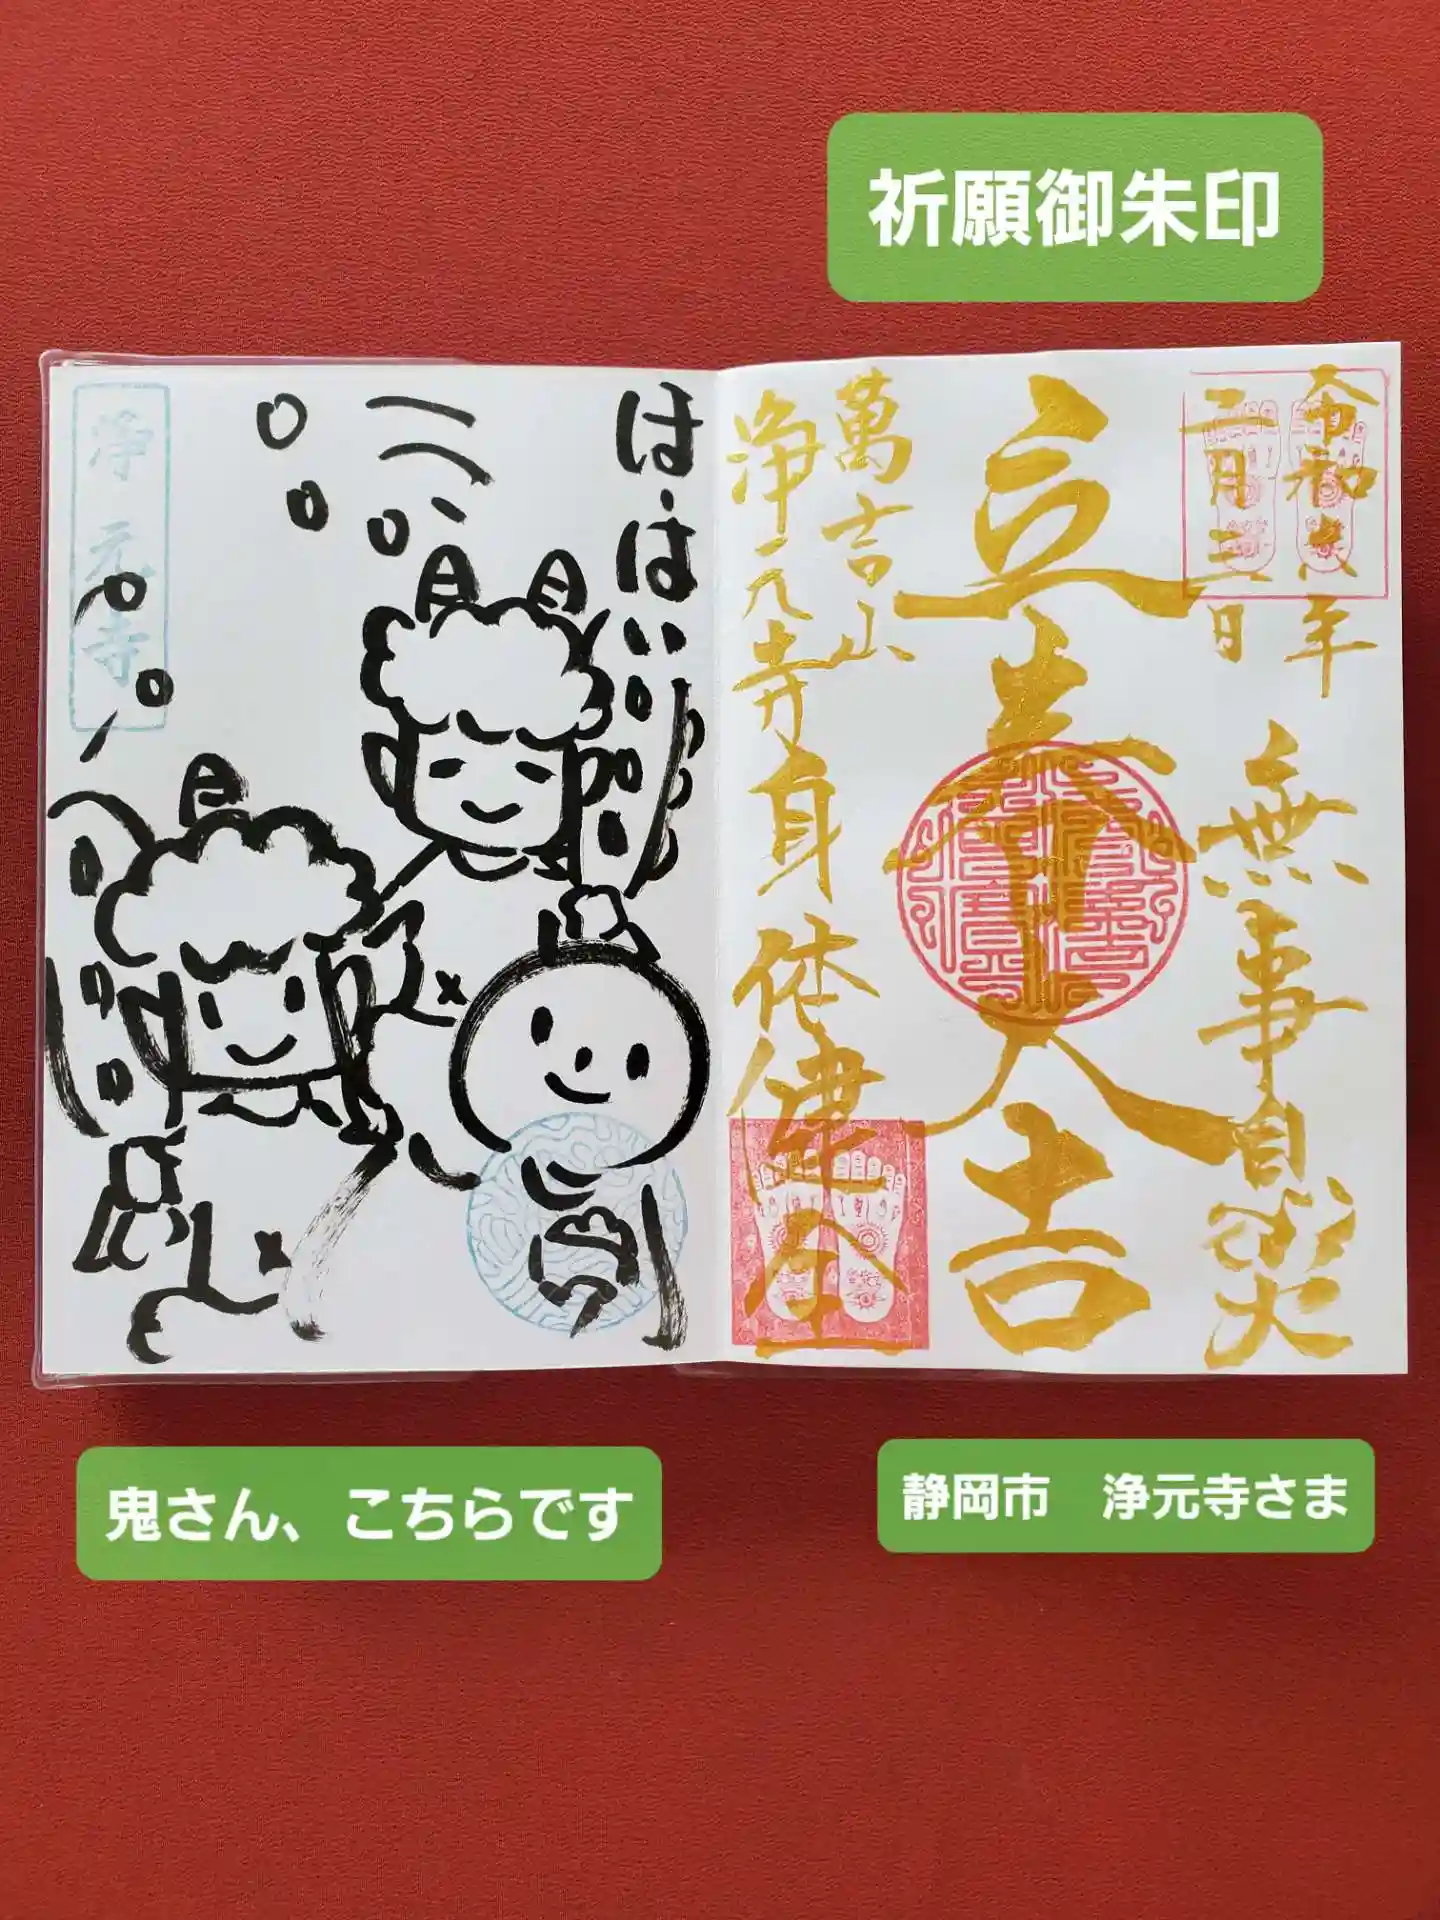 祈願御朱印
令和六年
二月三日
無事自災
立春大吉
萬吉山
浄元寺
身体健全
は・はい
浄元寺
鬼さん、こちらです
静岡市 浄元寺さま